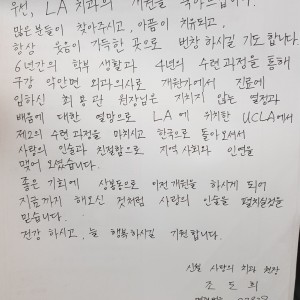 우선, LA 치과의 개원을 축하드립니다.
많은 분들이 찾아주시고, 아픔이 치유되고,
항상 웃음이 가득한 곳으로 번창 하시길 기도 합니다.
6년간의 학부 생활과 4년의 수련과정을 통해
구강 악안면 외과의사로 개원가에서 진료에
임하신 최 관 원장님은 지치지 않는 열정과
배움에 대한 열망으로 LA에 위치한 UCLA에서
제2의 수련 과정을 마치시고 한국으로 돌아오셔서
사랑의 인술과 친절함으로 지역 사회와 인연을
맺어 오셨습니다.
좋은 기회에 상봉동으로 이전 개원을 하시게 되어
지금까지 해오신 것처럼 사랑의 인술을 펼치실것을
믿습니다.
건강 하시고, 늘 행복하시길 기원합니다.
사랑의 치과 원장
조